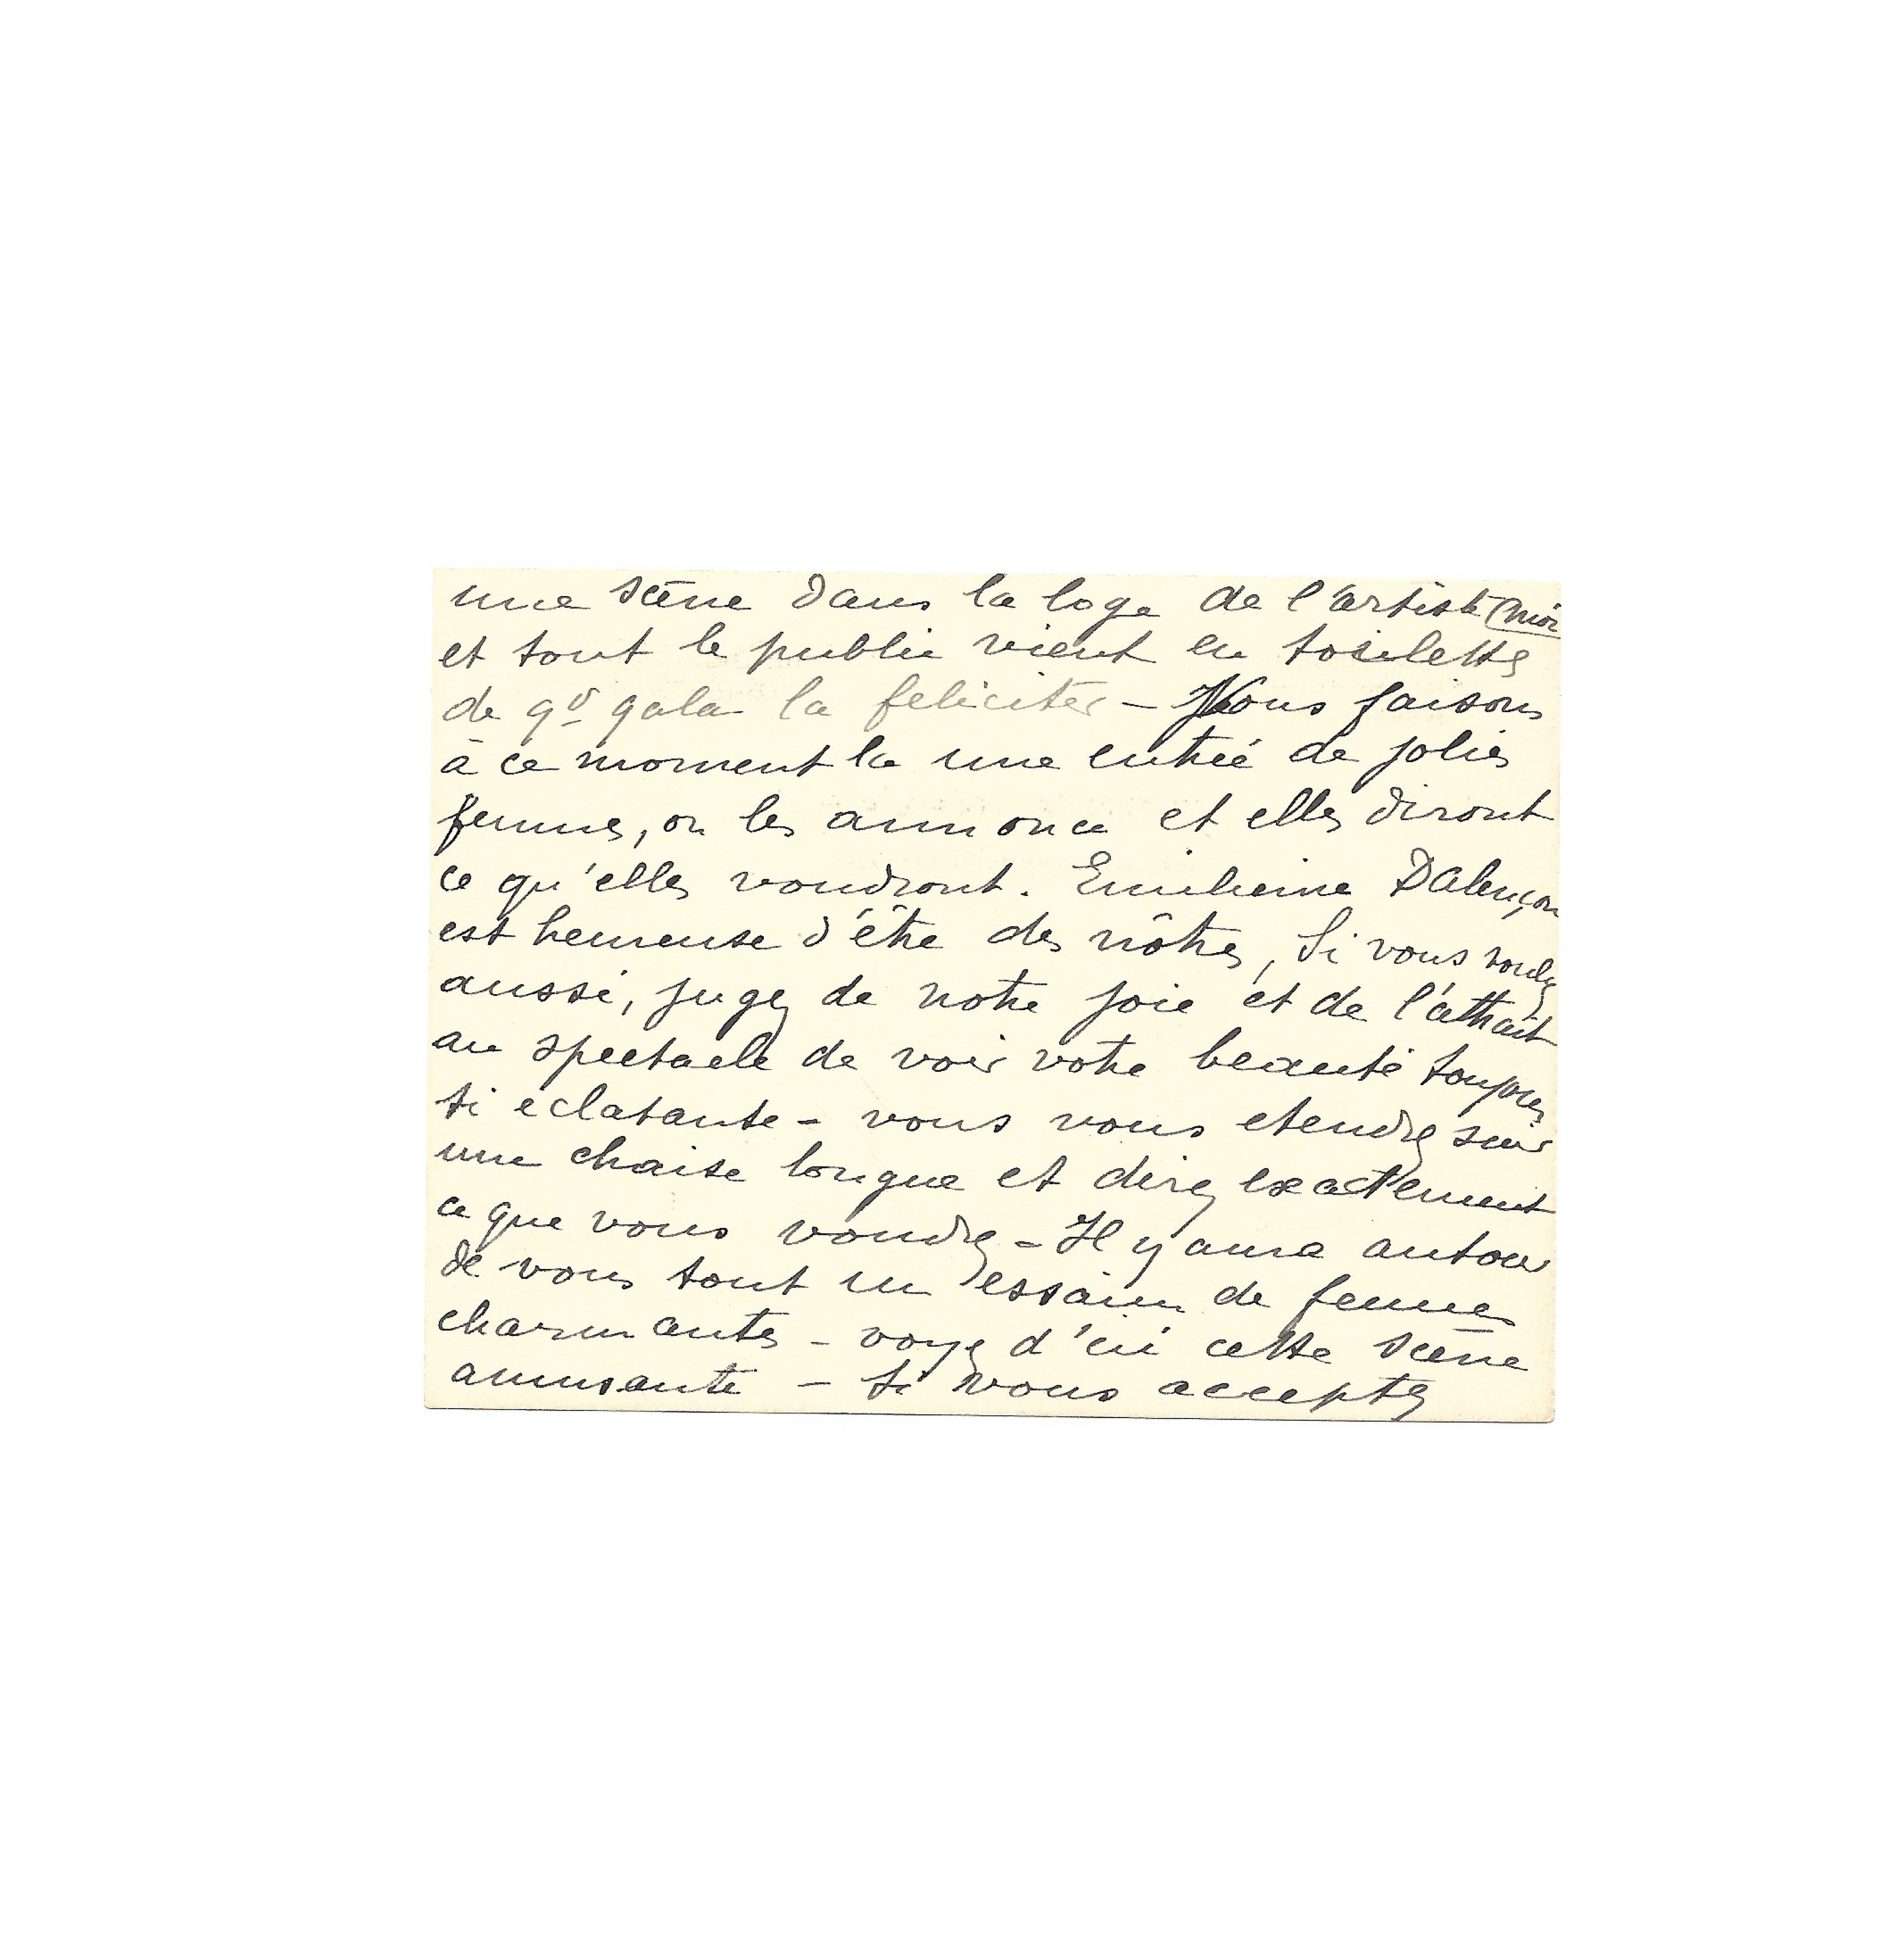 une scène dans la loge de l'artiste (moi
et tout le public vient en toilettes
de gd gala la feliciter – Nous faisons
à ce moment la une entrée de jolies
femmes, on les annonce et elles diront
ce qu'elles voudront. Emilienne D'Alençon
est heureuse d'être des nôtres, Si vous voulez
aussi, jugez de notre joie et de l'attrait
au spectacle de voir votre beauté toujours
si éclatante – vous vous etendrez sur
une chaise longue et direz exactement
ce que vous voudrez – Il y aura autour
de vous tout un essaim de femmes
charmantes – voyez d'ici cette scène
amusante – si vous acceptez